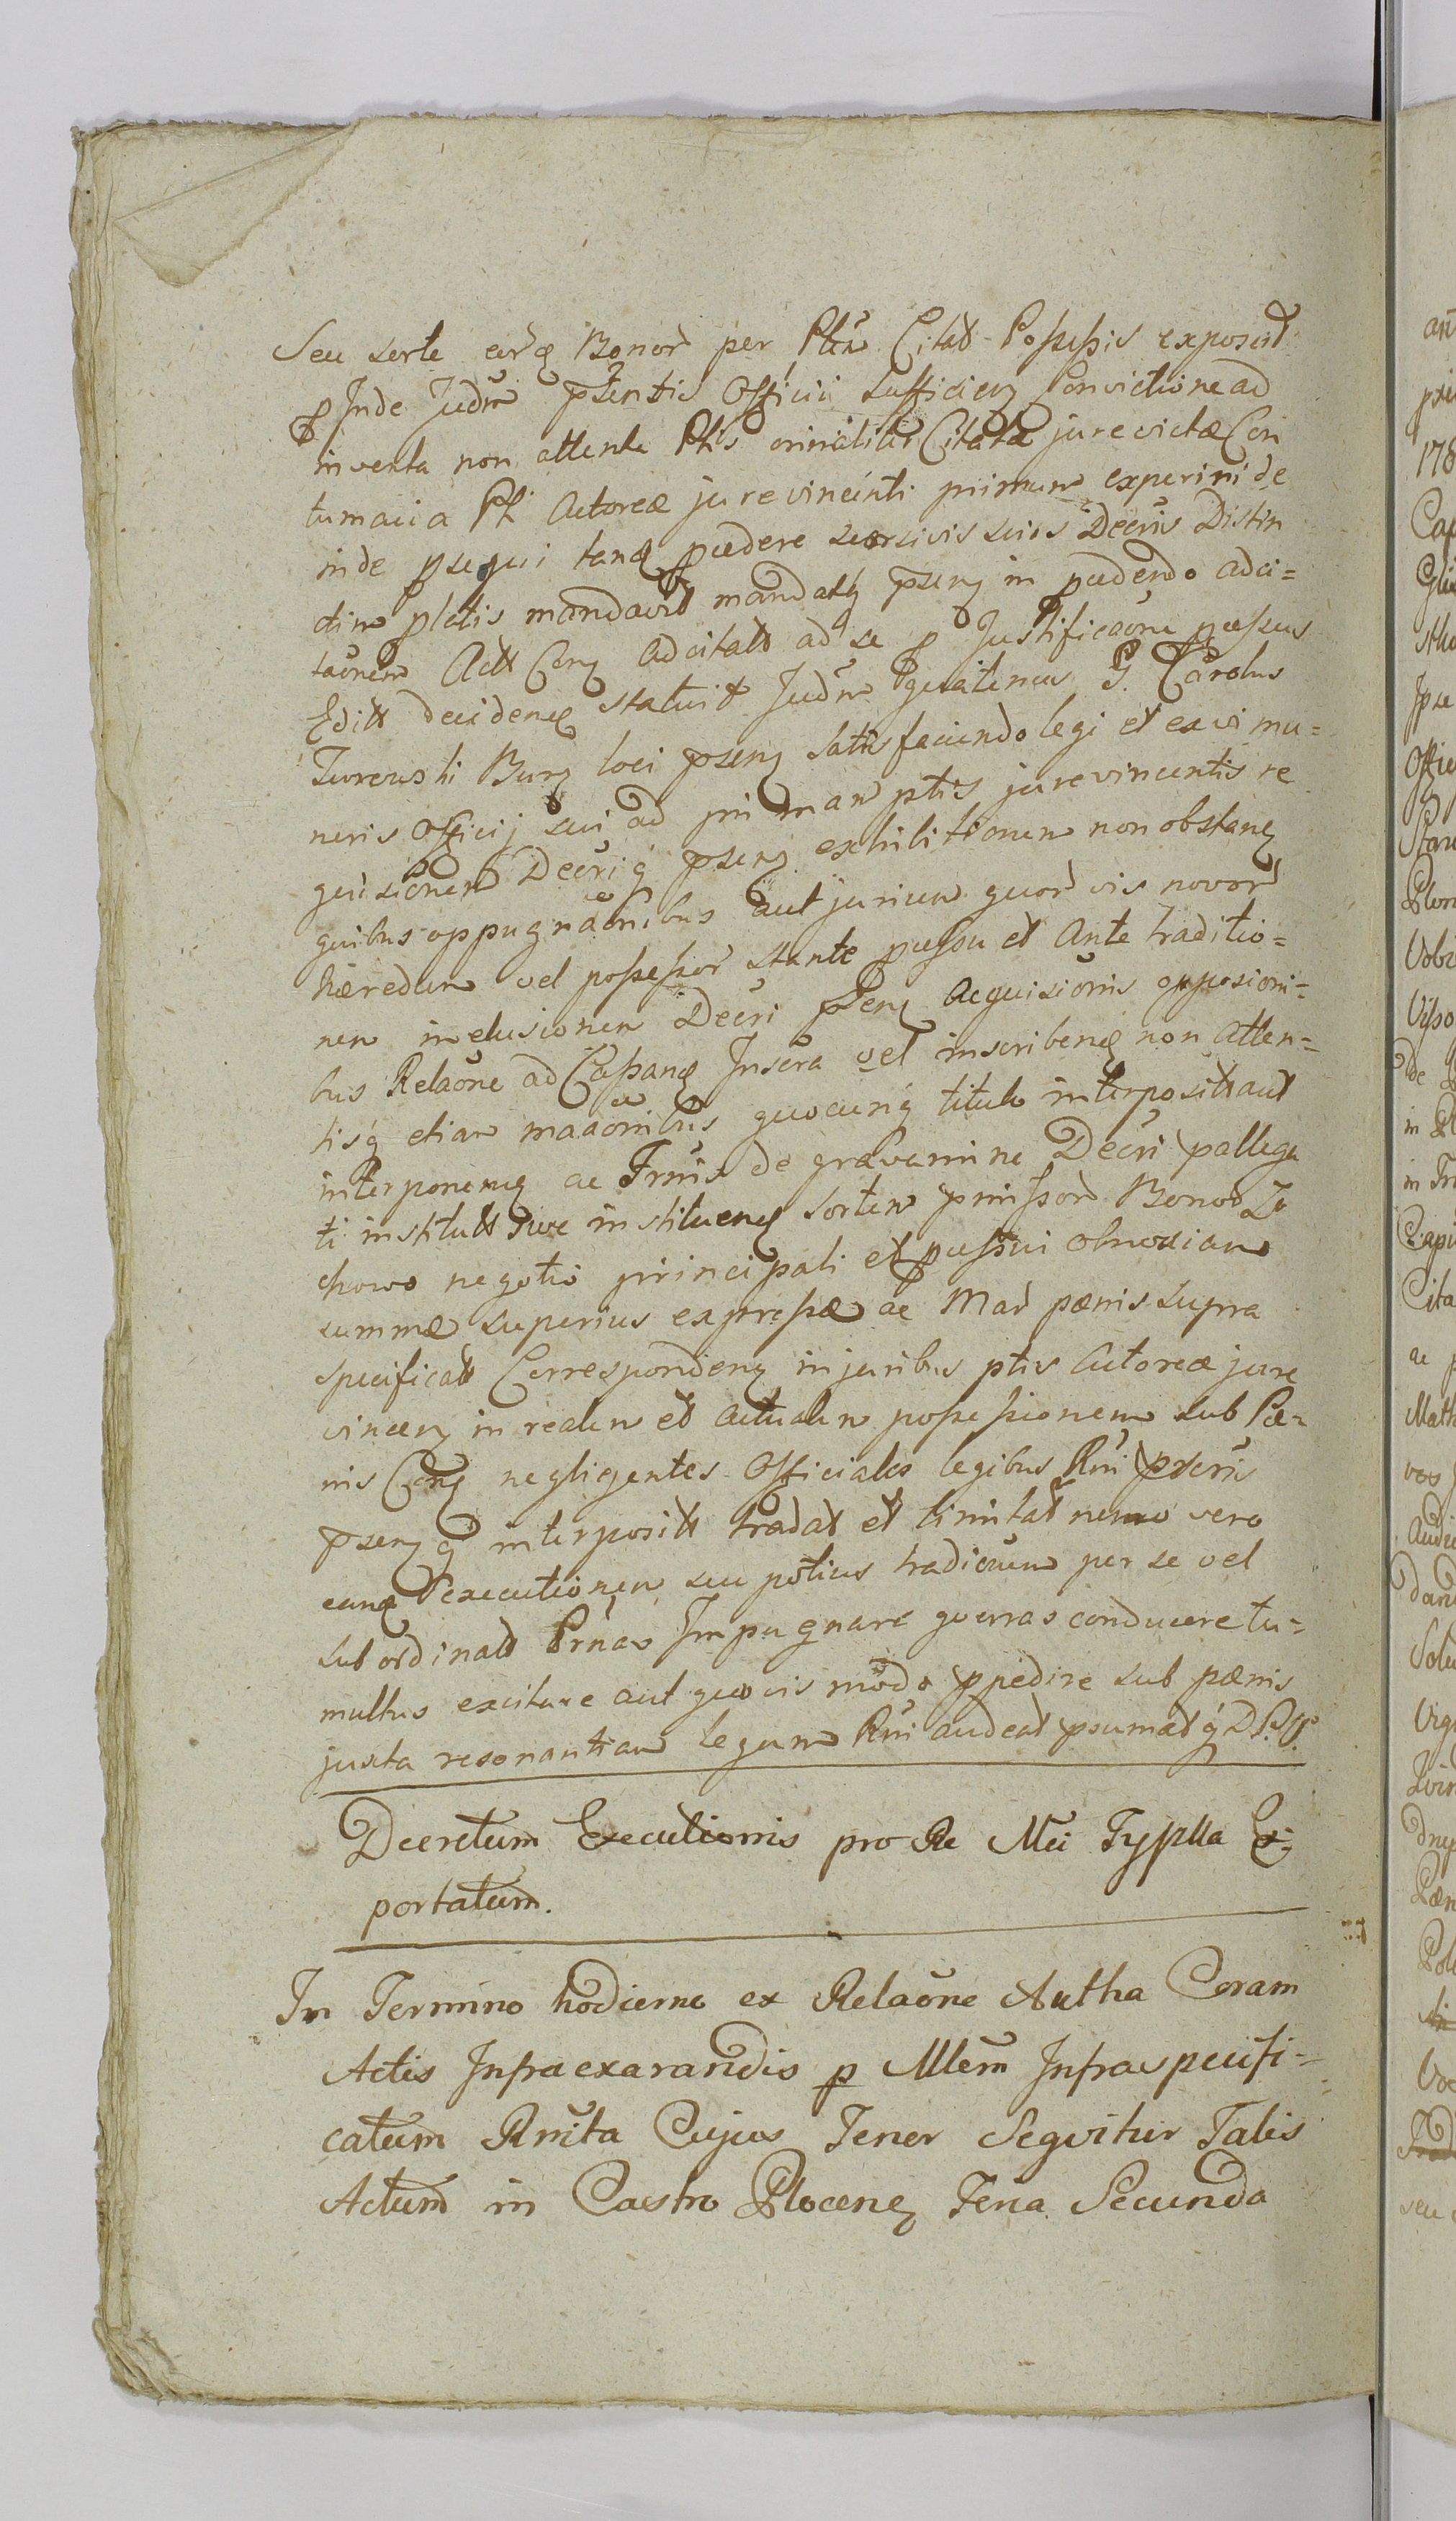 Seu sorte earq Bonor per Ptem Citat Possessis exposit
p Inde Judm ptsentis Officii sufficien Convictione ad
inventa non attenta Ptis originaliter Citatæ jurevictæ Con
tumacia Pti Actoreæ jurevincenti primum experiri de
inde psequi tanq pcedere suis Decris Distin
ctim platis mandavit psen in pcedendo adci=
taonem Actt Cen Adcitatt ad se p Justificaone pcessus
Editt decidenq statuit Judm quatenus G. Carolus
Turowski Burg loci psen satisfaciendo legi et ex vi mu=
neris Officij sui ad primam ptis jurevincentis re
quisitionem Decriq psen exhibitionem non obstan
quibus oppugnaonibus aut jurium quorvis novor
hæredum vel possessor stante pcessu et Ante traditio=
nem in elusionem Decri psen Acquisionis opposioni=
bus Relaone ad Cassanq Inscra vel inscribenq non atten=
tisq etiam maaonibus quocunq titulo interposit aut
interponenq ac Trmis de gravamine Decri pallega
ti institutt sive instituenq sortem pmissor Bonor Zo
chowo negotio principali et pcessui obnoxiam
summæ superius expressæ ac Mar pænis supra
specificatt Corresponden in juribus ptis Actoreæ jure
vincen in realem et actualem possessionem sub Pæ=
nis Con negligentes Officiales legibus Rni pscris
psenq interpositt tradat et limitat nemo vero
eanq executionem seu potius tradionem per se vel
subordinatt Prnas Impugnare guerras conducere tu=
multus excitare aut quovis modo ppedire sub pænis
juxta resonantiam legum Rni audeat psumatq D.P.V.
Decretum Executionis pro Re Mci Typlla Ex=
portatum.
In Termino hodierno ex Relaone Autha Coram
Actis Infraexarandis p Mlem Infraspecifi=
catum Rmita Cujus Tenor Sequitur Talis
Actum in Castro Plocen Feria Secunda